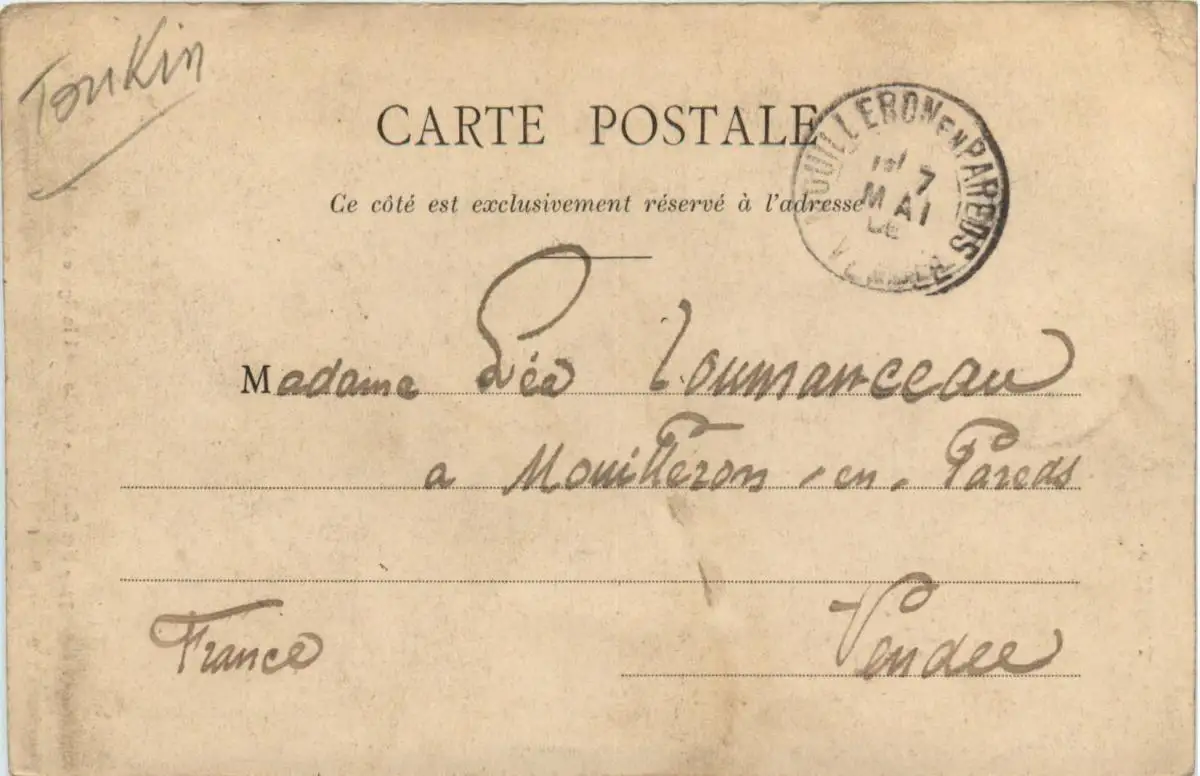 Tonkin
CARTE POSTALE
Ce côté est exclusivement réservé à l'adresse
MOUILLERON EN PAREDS
7
MAI
VENDEE
Madame Léa
a Mouilleron-en-Pareds
France Vendee